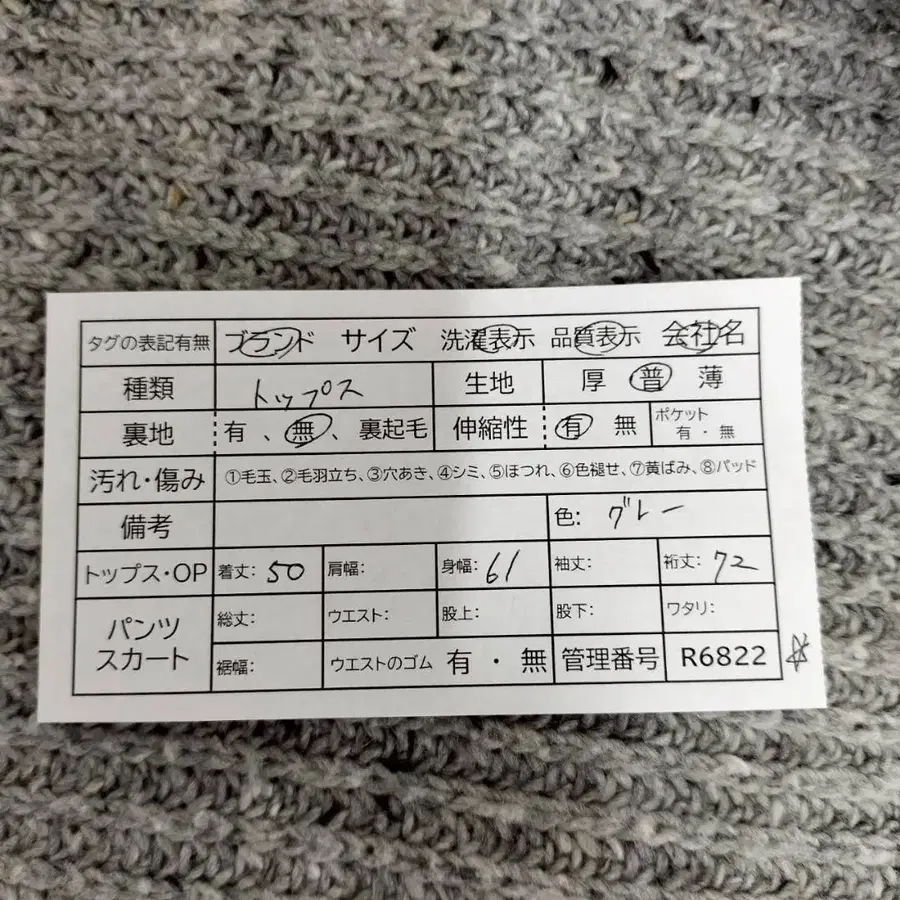 タグの表記有無 ブランド サイズ 洗濯表示 品質表示 会社名
種類 トップス 生地 厚 普 薄
裏地 有 、 無 、 裏起毛 伸縮性 有 無 ポケット 有 ・ 無
汚れ・傷み ①毛玉、②毛羽立ち、③穴あき、④シミ、⑤ほつれ、⑥色褪せ、⑦黄ばみ、⑧パッド
備考 色: グレー
トップス・OP 着丈: 50 肩幅: 身幅: 61 袖丈: 裄丈: 72
パンツ スカート 総丈: ウエスト: 股上: 股下: ワタリ:
裾幅: ウエストのゴム 有 ・ 無 管理番号 R6822 ☆